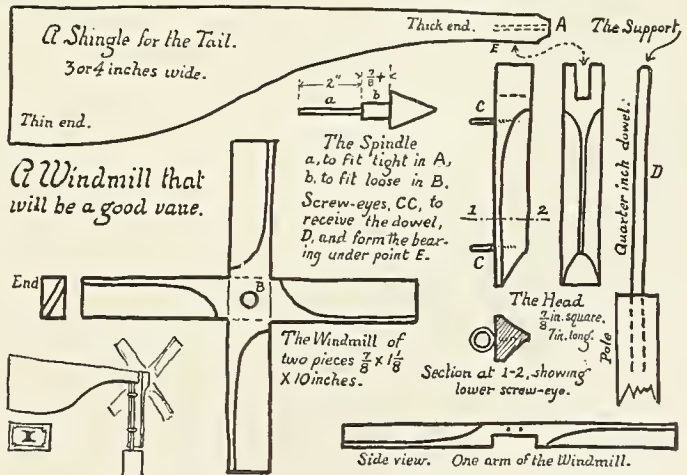 A Shingle for the Tail.
3 or 4 inches wide.
Thick end.
E
A
Thin end.
The Support
2"
7/8+
a
b
The Spindle
a, to fit tight in A,
b, to fit loose in B.
Screw-eyes, CC, to
receive the dowel,
D, and form the bear-
ing under point E.
C
1
2
C
Quarter inch dowel.
D
Pole
A Windmill that
will be a good vane.
End
B
The Windmill of
two pieces 7/8 x 1 1/8
x 10 inches.
The Head
7/8 in. square.
7 in. long.
Section at 1-2, showing
lower screw-eye.
I
Side view. One arm of the Windmill.